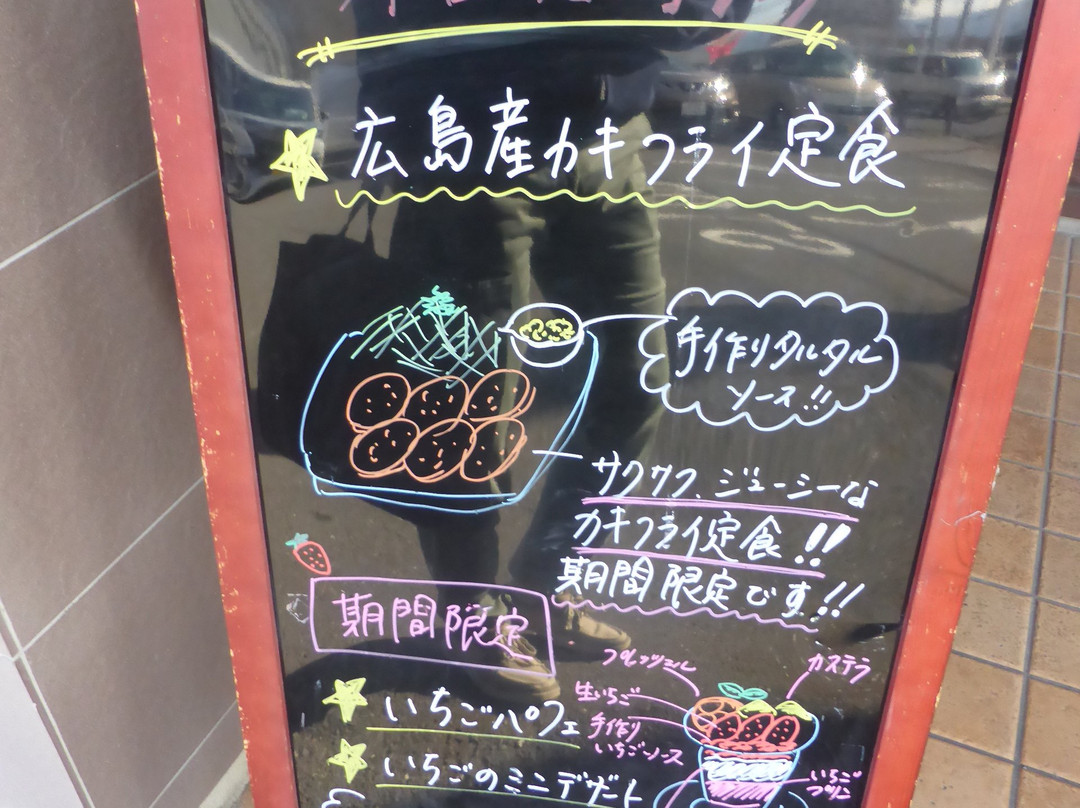 広島産カキフライ定食
手作りタルタル
ソース!!
サクサク、ジューシーな
カキフライ定食!!
期間限定です!!
期間限定
プレッツェル
カステラ
生いちご
いちごパフェ
手作り
いちごソース
いちごのミニデザート
いちご
プリン